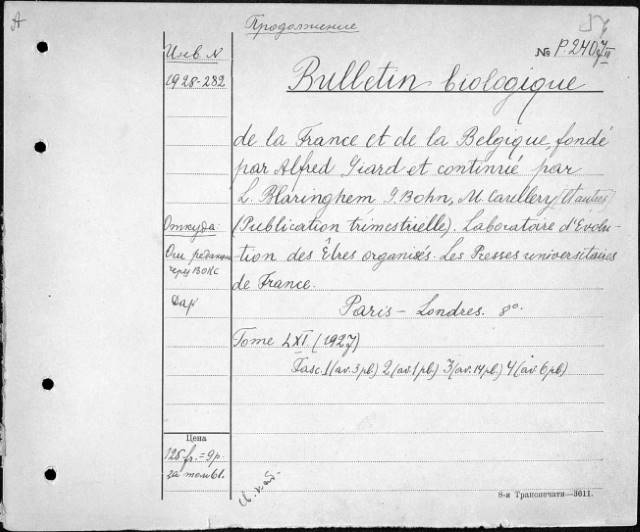 A
Продолжение
№ P.2407/III
Инв. N
1928-282
Bulletin biologique
de la France et de la Belgique, fondé
par Alfred Giard et continué par
L. Blaringhem, G. Bohn, M. Caullery (et autres)
Откуда
(Publication trimestrielle). Laboratoire d'Evolu-
От редакции
через ВОКС
tion des Êtres organisés. Les Presses universitaires
de France.
Дар
Paris – Londres. 8°.
Tome LXI (1927)
Fasc. 1 (av. 3 pl.) 2 (av. 1 pl.) 3 (av. 14 pl.) 4 (av. 6 pl.)
Цена
125 fr. = 9 р.
за том 61.
8-я Транспечати—3611.